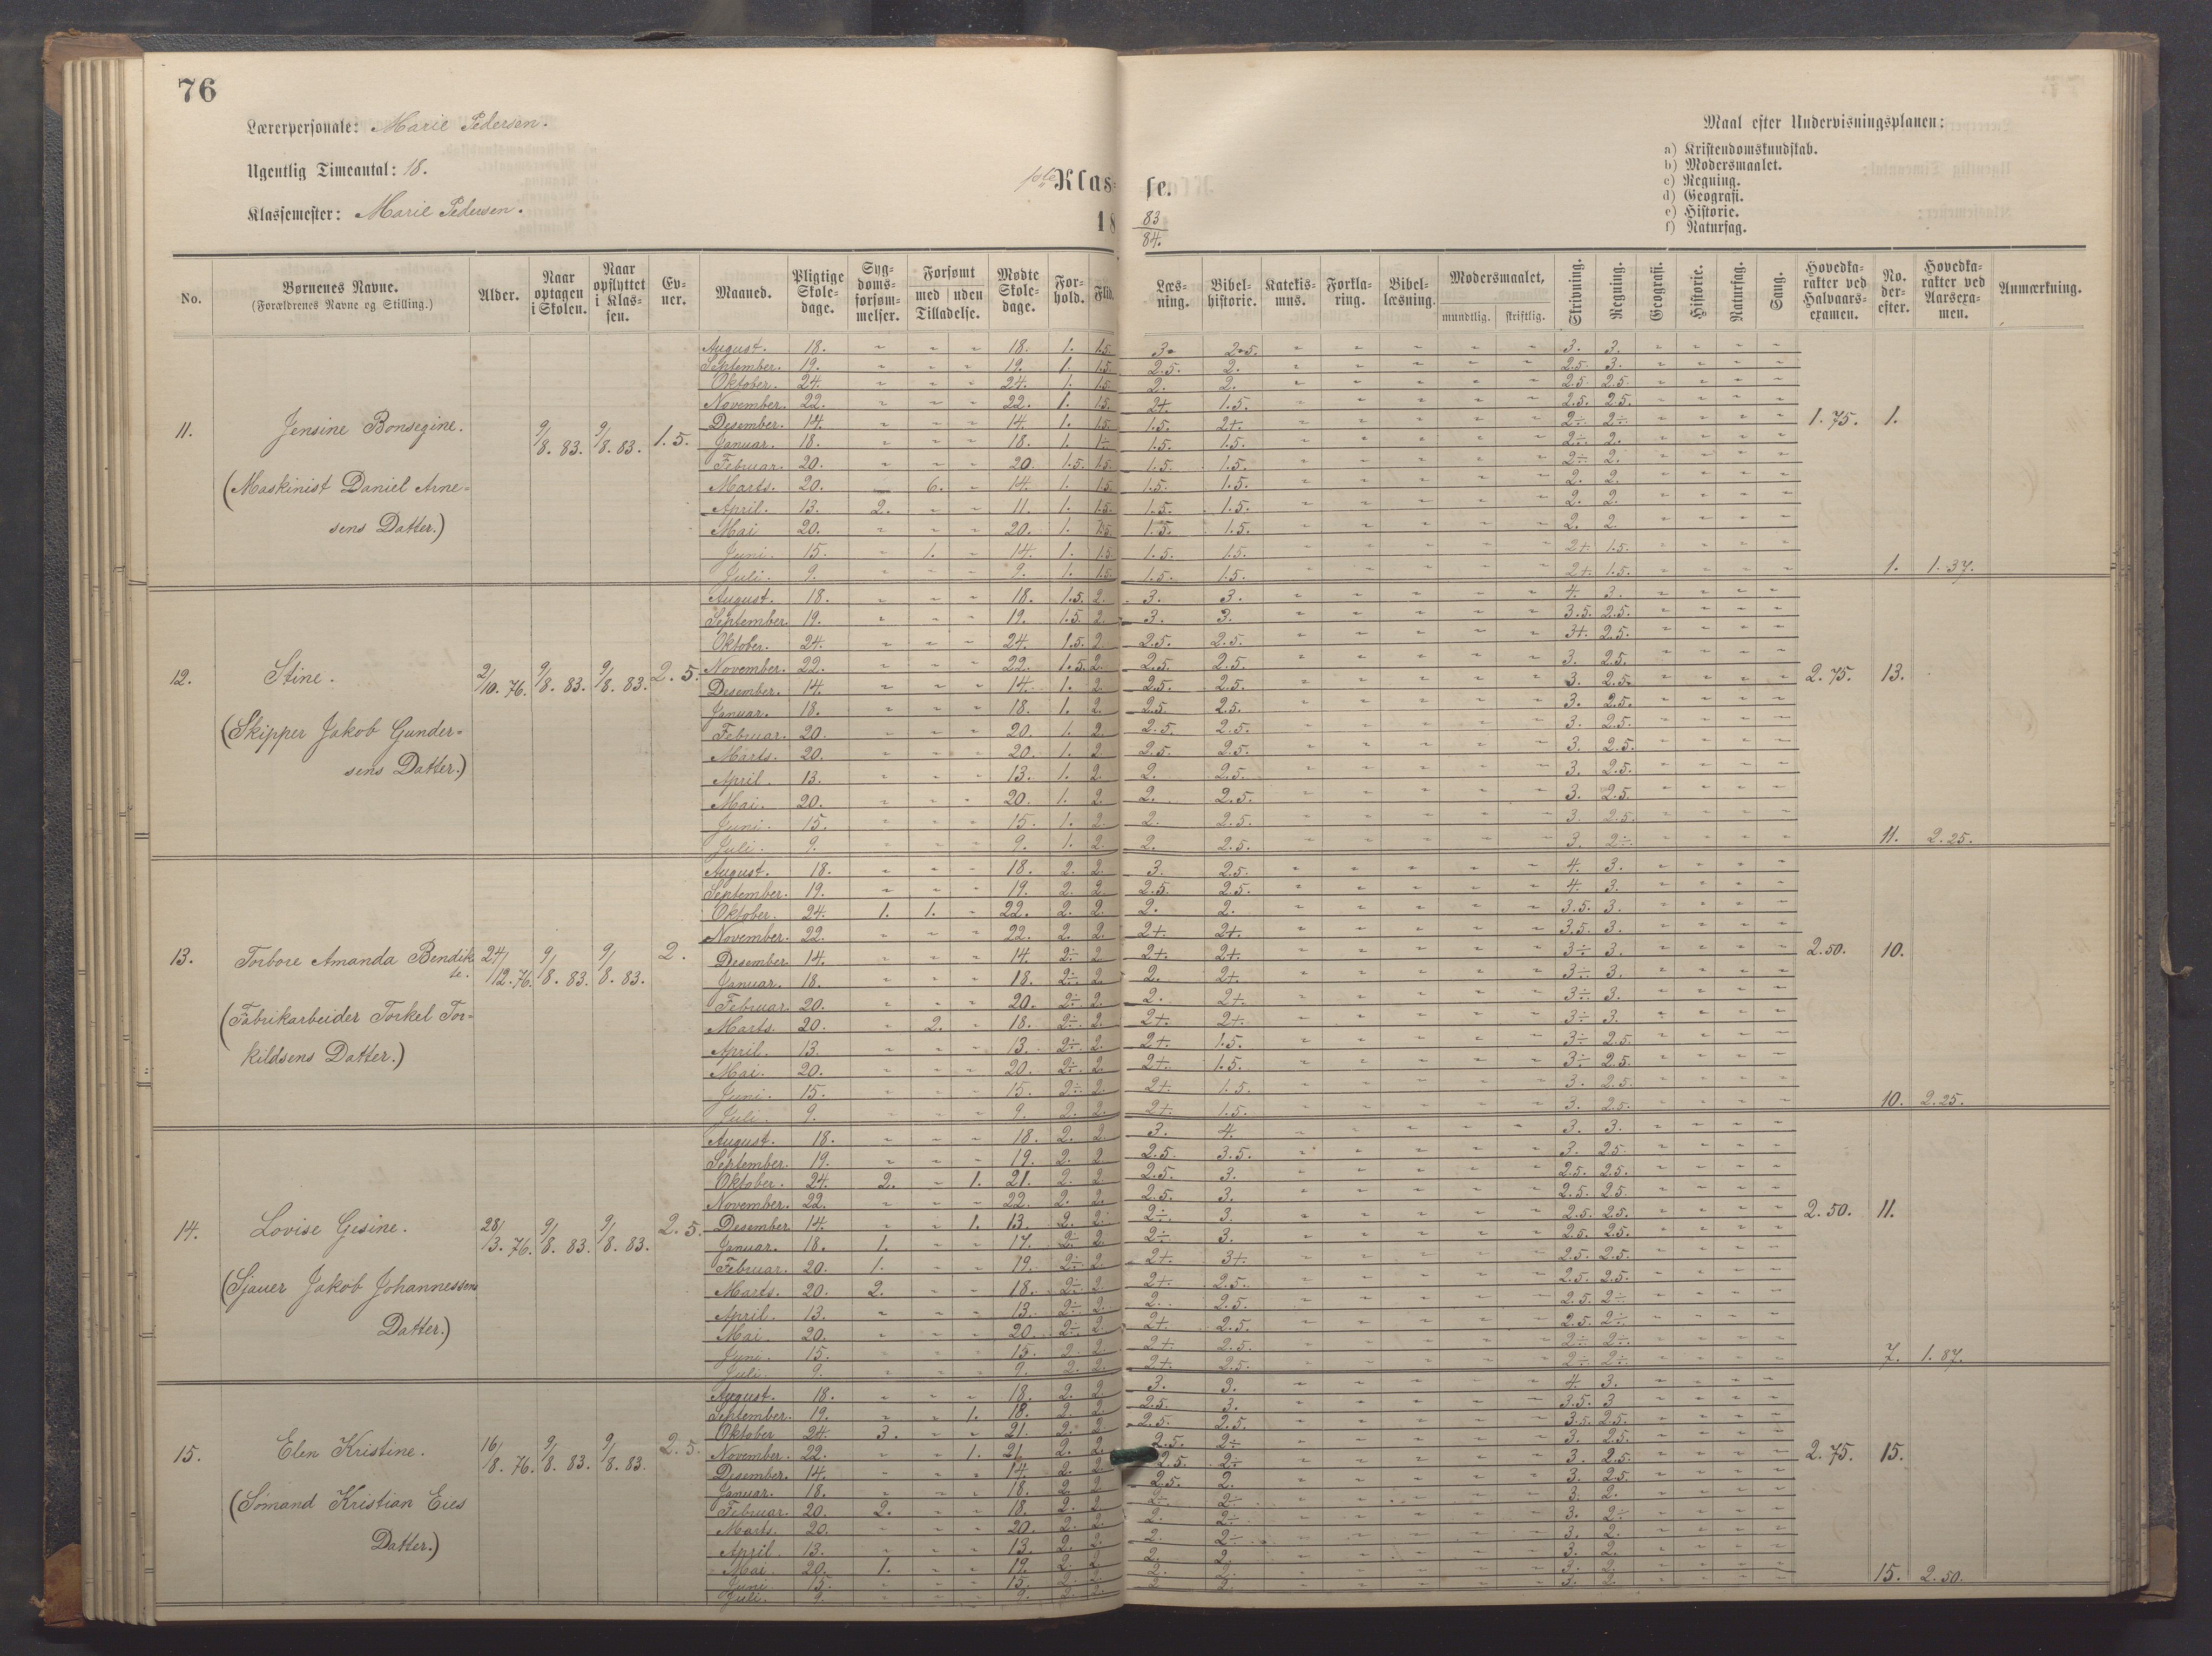 76
Lærerpersonale: Marie Pedersen.
Ugentlig Timeantal: 18.
Klassemester: Marie Pedersen.
1ste Klasse.
18 83/84.
Maal efter Undervisningsplanen:
a) Kristendomskundskab.
b) Modersmaalet.
c) Regning.
d) Geografi.
e) Historie.
f) Naturfag.
No. | Børnenes Navne. (Forældrenes Navne og Stilling.) | Alder. | Naar optagen i Skolen. | Naar opflyttet i Klassen. | Evner. | Maaned. | Pligtige Skoledage. | Sygdomsforsømmelser. | Forsømt med | uden Tilladelse. | Mødte Skoledage. | Forhold. | Flid. | Læsning. | Bibelhistorie. | Katekismus. | Forklaring. | Bibellæsning. | Modersmaalet, mundtlig. | skriftlig. | Skrivning. | Regning. | Geografi. | Historie. | Naturfag. | Sang. | Hovedkarakter ved Halvaarsexamen. | No. derefter. | Hovedkarakter ved Aarsexamen. | Anmærkning.
11. Jensine Bonsegine. 9/8. 83. 9/8. 83. 1.5. 1.75. 1.
(Maskinist Daniel Arnesens Datter.)
August. 18. - - - 18. 1. 1.5. 3. 2.5. - - - - - 3. 3. - - - -
September. 19. - - - 19. 1. 1.5. 2.5. 2. - - - - - 2.5 3. - - - -
Oktober. 24. - - - 24. 1. 1.5. 2. 2. - - - - - 2.5 2.5. - - - -
November. 22. - - - 22. 1. 1.5. 2+. 1.5. - - - - - 2.5. 2.5. - - - -
Desember. 14. - - - 14. 1. 1.5. 1.5. 2+. - - - - - 2÷ 2÷ - - - -
Januar. 18. - - - 18. 1. 1÷ 1.5. 1.5. - - - - - 2÷ 2. - - - -
Februar. 20. - - - 20. 1.5. 1.5. 1.5. 1.5. - - - - - 2÷ 2. - - - -
Marts. 20. - 6. - 14. 1. 1.5. 1.5. 1.5. - - - - - 2. 2. - - - -
April. 13. 2. - - 11. 1. 1.5. 1.5. 1.5. - - - - - 2. 2. - - - -
Mai 20. - - - 20. 1. 1.5. 1.5. 1.5. - - - - - 2. 2. - - - -
Juni. 15. - 1. - 14. 1. 1.5. 1.5. 1.5. - - - - - 2+. 1.5. - - - -
Juli. 9. - - - 9. 1. 1.5. 1.5. 1.5. - - - - - 2+. 1.5. - - - - 1. 1.37.
12. Stine. 2/10. 76. 9/8. 83. 9/8. 83. 2.5. 2.75. 13.
(Skipper Jakob Gundersens Datter.)
August. 18. - - - 18. 1.5. 2. 3. 3. - - - - - 4. 3. - - - -
September. 19. - - - 19. 1.5. 2. 3. 3. - - - - - 3.5. 2.5. - - - -
Oktober. 24. - - - 24. 1.5. 2. 2.5. 2.5. - - - - - 3+. 2.5. - - - -
November. 22. - - - 22. 1.5. 2. 2.5. 2.5. - - - - - 3. 2.5. - - - -
Desember. 14. - - - 14. 1. 2. 2.5. 2.5. - - - - - 3. 2.5. - - - -
Januar. 18. - - - 18. 1. 2. 2.5. 2.5. - - - - - 3. 2.5. - - - -
Februar. 20. - - - 20. 1. 2. 2.5. 2.5. - - - - - 3. 2.5. - - - -
Marts. 20. - - - 20. 1. 2. 2.5. 2.5. - - - - - 3. 2.5. - - - -
April 13. - - - 13. 1. 2. 2. 2.5. - - - - - 3. 2.5. - - - -
Mai. 20. - - - 20. 1. 2. 2. 2.5. - - - - - 3. 2.5. - - - -
Juni. 15. - - - 15. 1. 2. 2. 2.5. - - - - - 3. 2.5. - - - -
Juli. 9. - - - 9. 1. 2. 2. 2.5. - - - - - 3. 2÷ - - - - 11. 2.25.
13. Torbore Amanda Bendikte. 24/12. 76. 9/8. 83. 9/8. 83. 2. 2.50. 10.
(Fabrikarbeider Torkel Torkildsens Datter.)
August. 18. - - - 18. 2. 2. 3. 2.5. - - - - - 4. 3. - - - -
September. 19. - - - 19. 2. 2. 2.5. 2.5. - - - - - 4. 3. - - - -
Oktober. 24. 1. 1. - 22. 2. 2. 2. 2. - - - - - 3.5. 3. - - - -
November. 22. - - - 22. 2. 2. 2+. 2+. - - - - - 3.5. 3. - - - -
Desember 14. - - - 14. 2÷ 2. 2+. 2+. - - - - - 3÷ 3. - - - -
Januar. 18. - - - 18. 2÷ 2. 2. 2+. - - - - - 3÷ 3. - - - -
Februar. 20. - - - 20. 2÷ 2. 2. 2+. - - - - - 3÷ 3. - - - -
Marts. 20. - 2. - 18. 2÷ 2. 2+. 2+. - - - - - 3÷ 3. - - - -
April. 13. - - - 13. 2÷ 2. 2+. 1.5. - - - - - 3÷ 2.5. - - - -
Mai. 20. - - - 20. 2÷ 2. 2+. 1.5. - - - - - 3÷ 2.5. - - - -
Juni. 15. - - - 15. 2÷ 2. 2+. 1.5. - - - - - 3. 2.5. - - - -
Juli. 9. - - - 9. 2. 2. 2+. 1.5. - - - - - 3. 2.5. - - - - 10. 2.25.
14. Lovise Gesine. 28/3. 76. 9/8. 83. 9/8. 83. 2.5. 2.50. 11.
(Sjauer Jakob Johannessens Datter.)
August. 18. - - - 18. 2. 2. 3. 4. - - - - - 3. 3. - - - -
September. 19. - - - 19. 2. 2. 2.5 3.5. - - - - - 3. 2.5 - - - -
Oktober. 24. 2. - 1. 21. 2. 2. 2.5. 3. - - - - - 2.5. 2.5. - - - -
November. 22. - - - 22. 2. 2. 2.5. 3. - - - - - 2.5. 2.5. - - - -
Desember 14. - - 1. 13. 2. 2. 2÷ 3. - - - - - 2.5. 2.5. - - - -
Januar. 18. 1. - - 17. 2÷ 2. 2÷ 3. - - - - - 2.5. 2.5. - - - -
Februar. 20. 1. - - 19. 2÷ 2. 2+ 3+. - - - - - 2.5. 2.5. - - - -
Marts. 20. 2. - - 18. 2÷ 2. 2+. 2.5. - - - - - 2.5. 2.5. - - - -
April. 13. - - - 13. 2÷ 2. 2. 2.5. - - - - - 2.5. 2÷ - - - -
Mai. 20. - - - 20. 2÷ 2. 2+ 2.5. - - - - - 2.5 2÷ - - - -
Juni. 15. - - - 15. 2. 2. 2+ 2.5. - - - - - 2÷ 2÷ - - - -
Juli. 9. - - - 9. 2. 2. 2+. 2.5. - - - - - 2÷ 2÷ - - - - 7. 1.87.
15. Elen Kristine. 16/8. 76. 9/8. 83. 9/8. 83. 2.5. 2.75. 15.
(Sømand Kristian Eies Datter.)
August. 18. - - - 18. 2. 2. 3. 3. - - - - - 4. 3. - - - -
September. 19. - - 1. 18. 2. 2. 2.5. 3. - - - - - 3.5. 3 - - - -
Oktober 24. 3. - - 21. 2. 2 2.5. 2.5. - - - - - 3.5. 2.5. - - - -
November. 22. - - 1. 21 2. 2. 2.5. 2÷ - - - - - 3. 2.5. - - - -
Desember. 14. - - - 14. 2. 2. 2.5. 2÷ - - - - - 3. 2.5. - - - -
Januar. 18. - - - 18. 2. 2 2.5. 2. - - - - - 3. 2.5. - - - -
Februar. 20. 2. - - 18. 2. 2. 2÷ 2÷ - - - - - 3. 2. - - - -
Marts. 20. - - - 20. 2. 2. 2. 2÷ - - - - - 3. 2÷ - - - -
April 13. - - - 13. 2. 2. 2. 2÷ - - - - - 3. 2. - - - -
Mai 20. 1. - - 19. 2. 2. 2. 2. - - - - - 3. 2. - - - -
Juni. 15. - - - 15. 2. 2. 2. 2. - - - - - 3. 2. - - - -
Juli. 9. - - - 9. 2. 2. 2 2. - - - - - 3. 2. - - - - 15. 2.50.